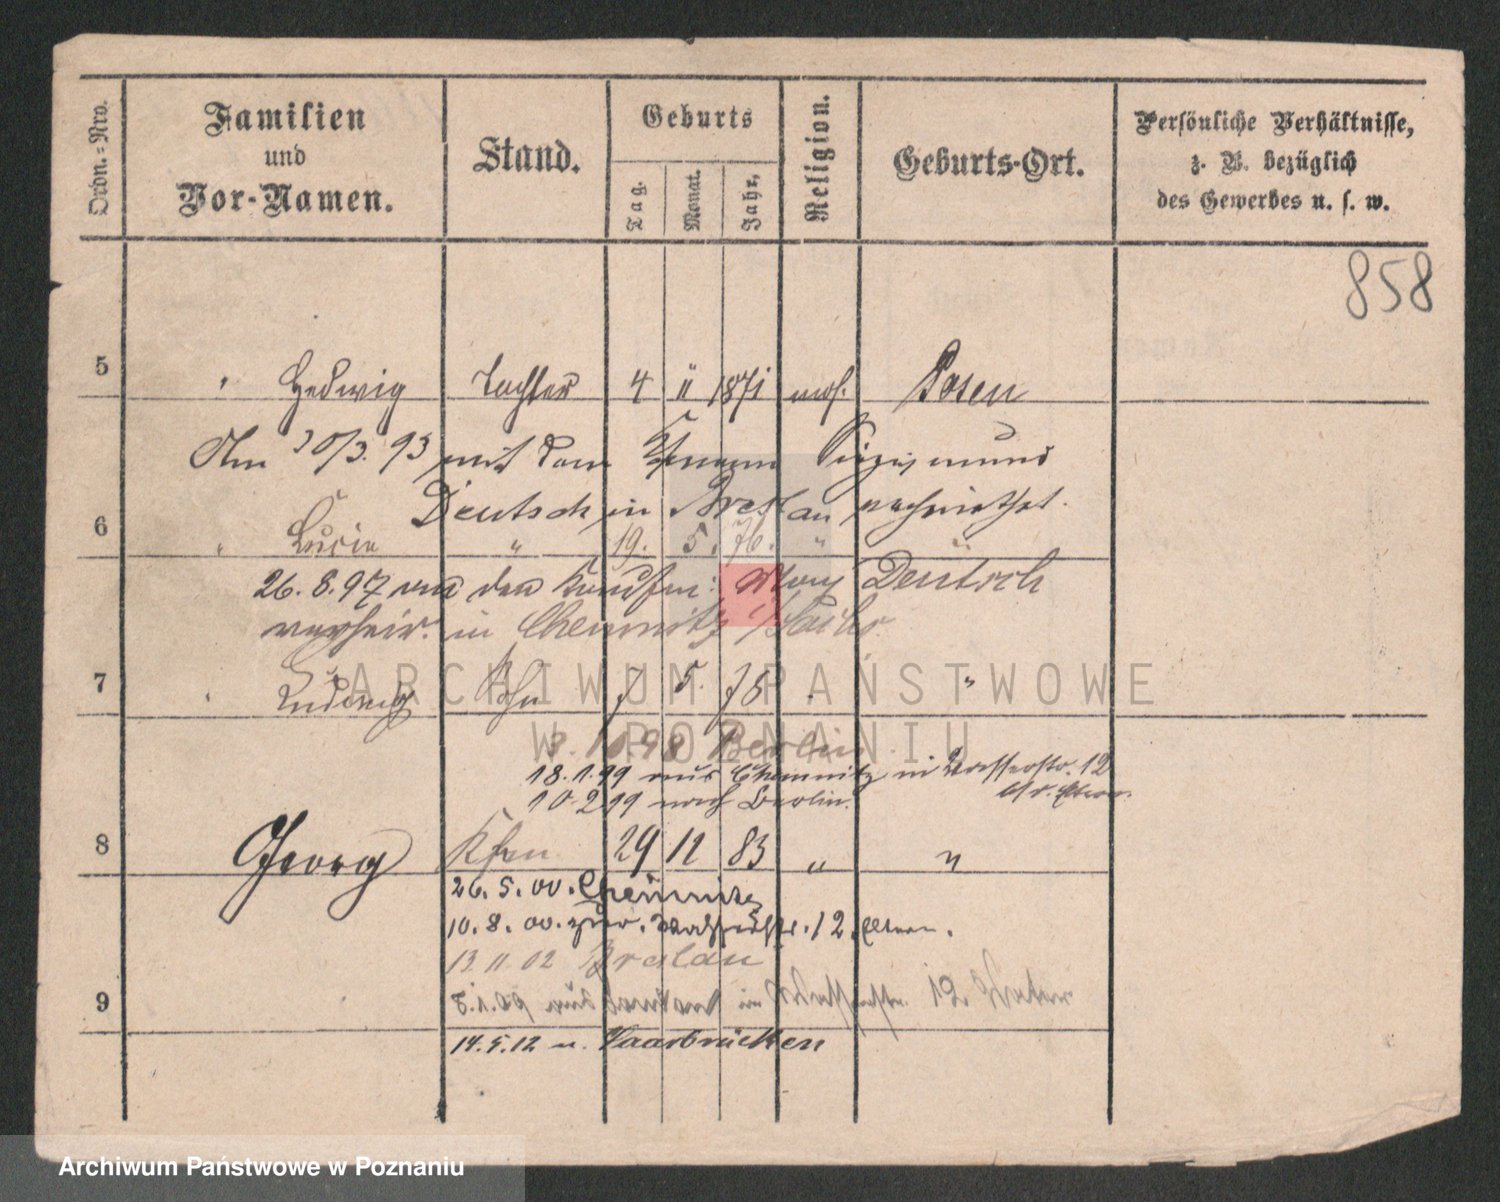 Ordn.-Nro.
Familien
und
Vor-Namen.
Stand.
Geburts
Tag.
Monat.
Jahr.
Religion.
Geburts-Ort.
Persönliche Verhältnisse,
z. B. bezüglich
des Gewerbes u. s. w.
858
5 " Hedwig Tochter 4 11 1871 mos. Posen
Am 30/3. 93 mit dem Kfmann Siegismund
Deutsch in Breslau verheirathet.
6 " Lucie " 19. 5. 76. " "
26. 8. 97 an den Kaufm: Max Deutsch
verheir. in Chemnitz i/Sachs.
7 " Ludwig Sohn 7 5. 78 " "
ARCHIWUM PAŃSTWOWE
W POZNANIU
8. 10. 98 Berlin
18.1.99 aus Chemnitz in Wasserstr. 12
b/d. Eltern.
10 2 99 nach Berlin.
8 Georg Kfm 29 11 83 " "
26. 5. 00. Chemnitz
10. 8. 00. zur. Wasserstr. 12. Eltern.
13 11 02 Breslau
9 in Wasserstr. 12
14. 5. 12 n. Saarbrücken
Archiwum Państwowe w Poznaniu